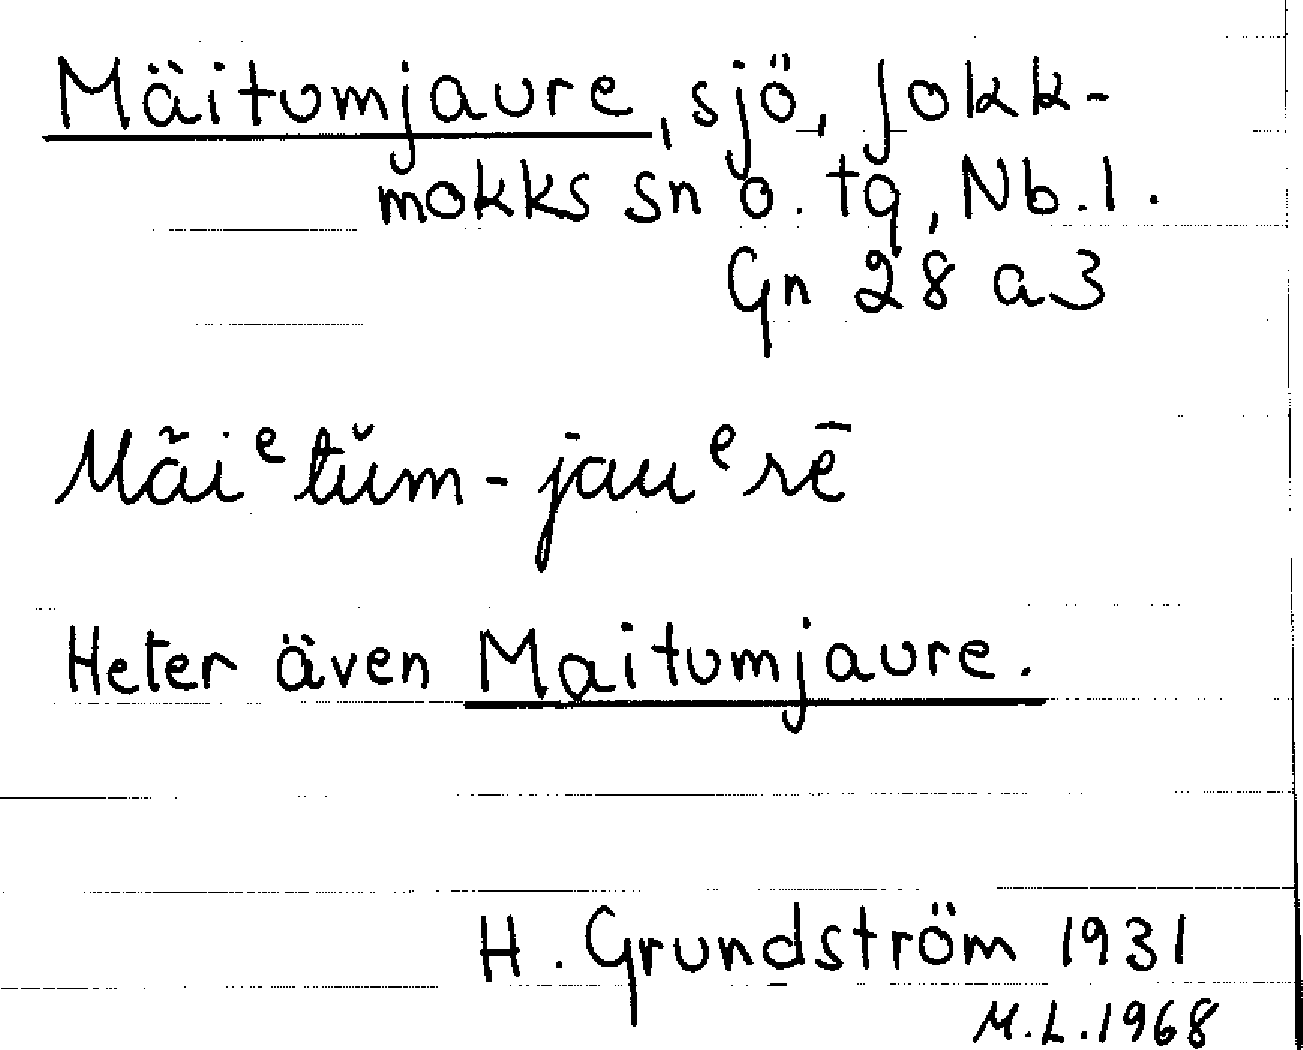 Mäitumjaure, sjö, Jokk-
mokks sn o. tg, Nb. l.
Gn 28 a 3
Mãiᵉtŭm-jauᵉrē
Heter även Maitumjaure.
H. Grundström 1931
M.L. 1968